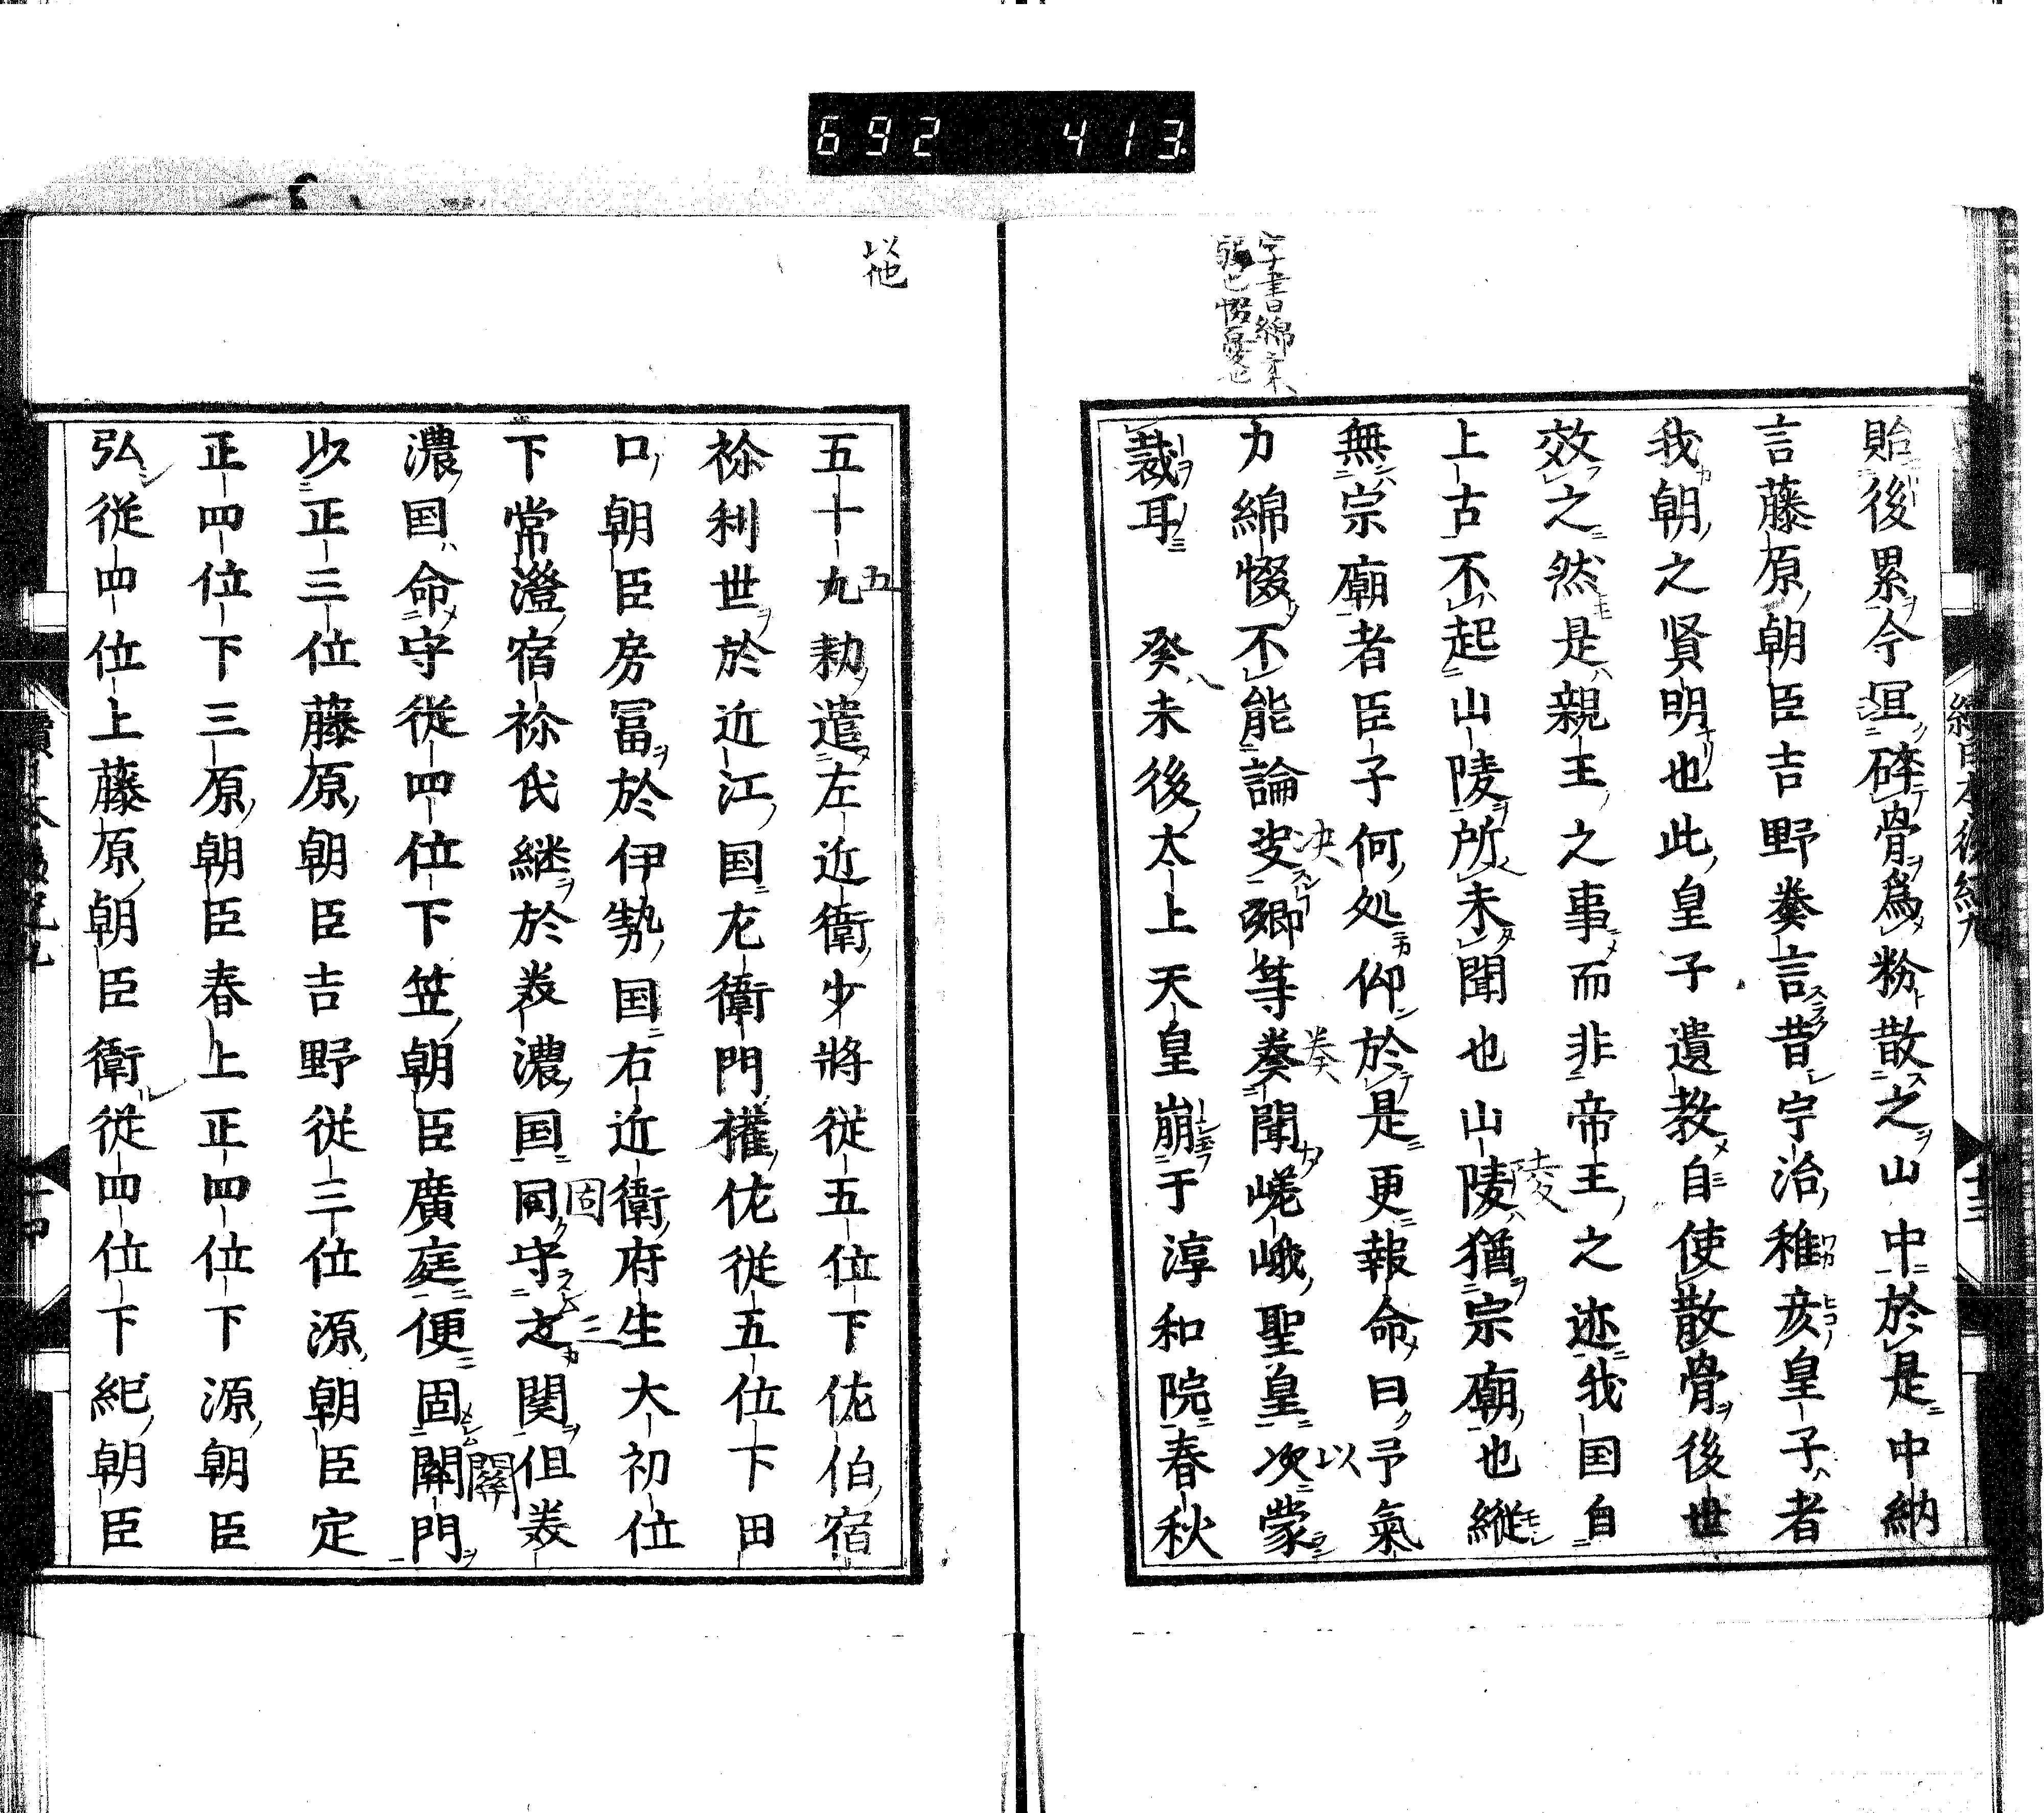 692 413
字書曰綿柔
弱也惙憂也
貽後累今冝碎骨爲粉散之山中於是中納
言藤原朝臣吉野奏言昔宇治稚彦皇子者
我朝之賢明也此皇子遺教自使散骨後世
效之然是親王之事而非帝王之迹我国自
上古不起山陵所未聞也山陵猶宗廟也縱
陵
無宗廟者臣子何処仰於是更報命曰予氣
力綿惙不能論定卿等奏聞嵯峨聖皇以蒙
決
奏
以
裁耳 癸未後太上天皇崩于淳和院春秋
以他
五十九勅遣左近衛少將從五位下佐伯宿
五
祢利世於近江国左衛門權佐從五位下田
口朝臣房冨於伊勢国右近衛府生大初位
下常澄宿祢氏継於美濃国同守之関但美
固
三
濃国命守從四位下笠朝臣廣庭便固關門
關
以正三位藤原朝臣吉野從三位源朝臣定
正四位下三原朝臣春上正四位下源朝臣
弘從四位上藤原朝臣衛從四位下紀朝臣